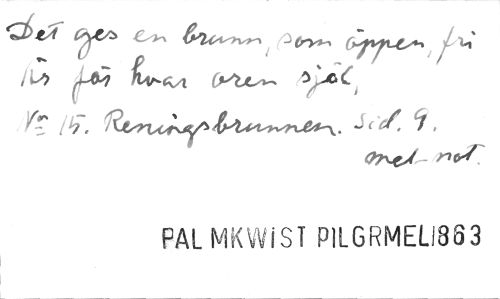 Det ges en brunn, som öppen, fri
Är för hvar oren själ,
No 15. Reningsbrunnen. Sid. 9.
mel-not.
PALMKWIST PILGRMEL1863